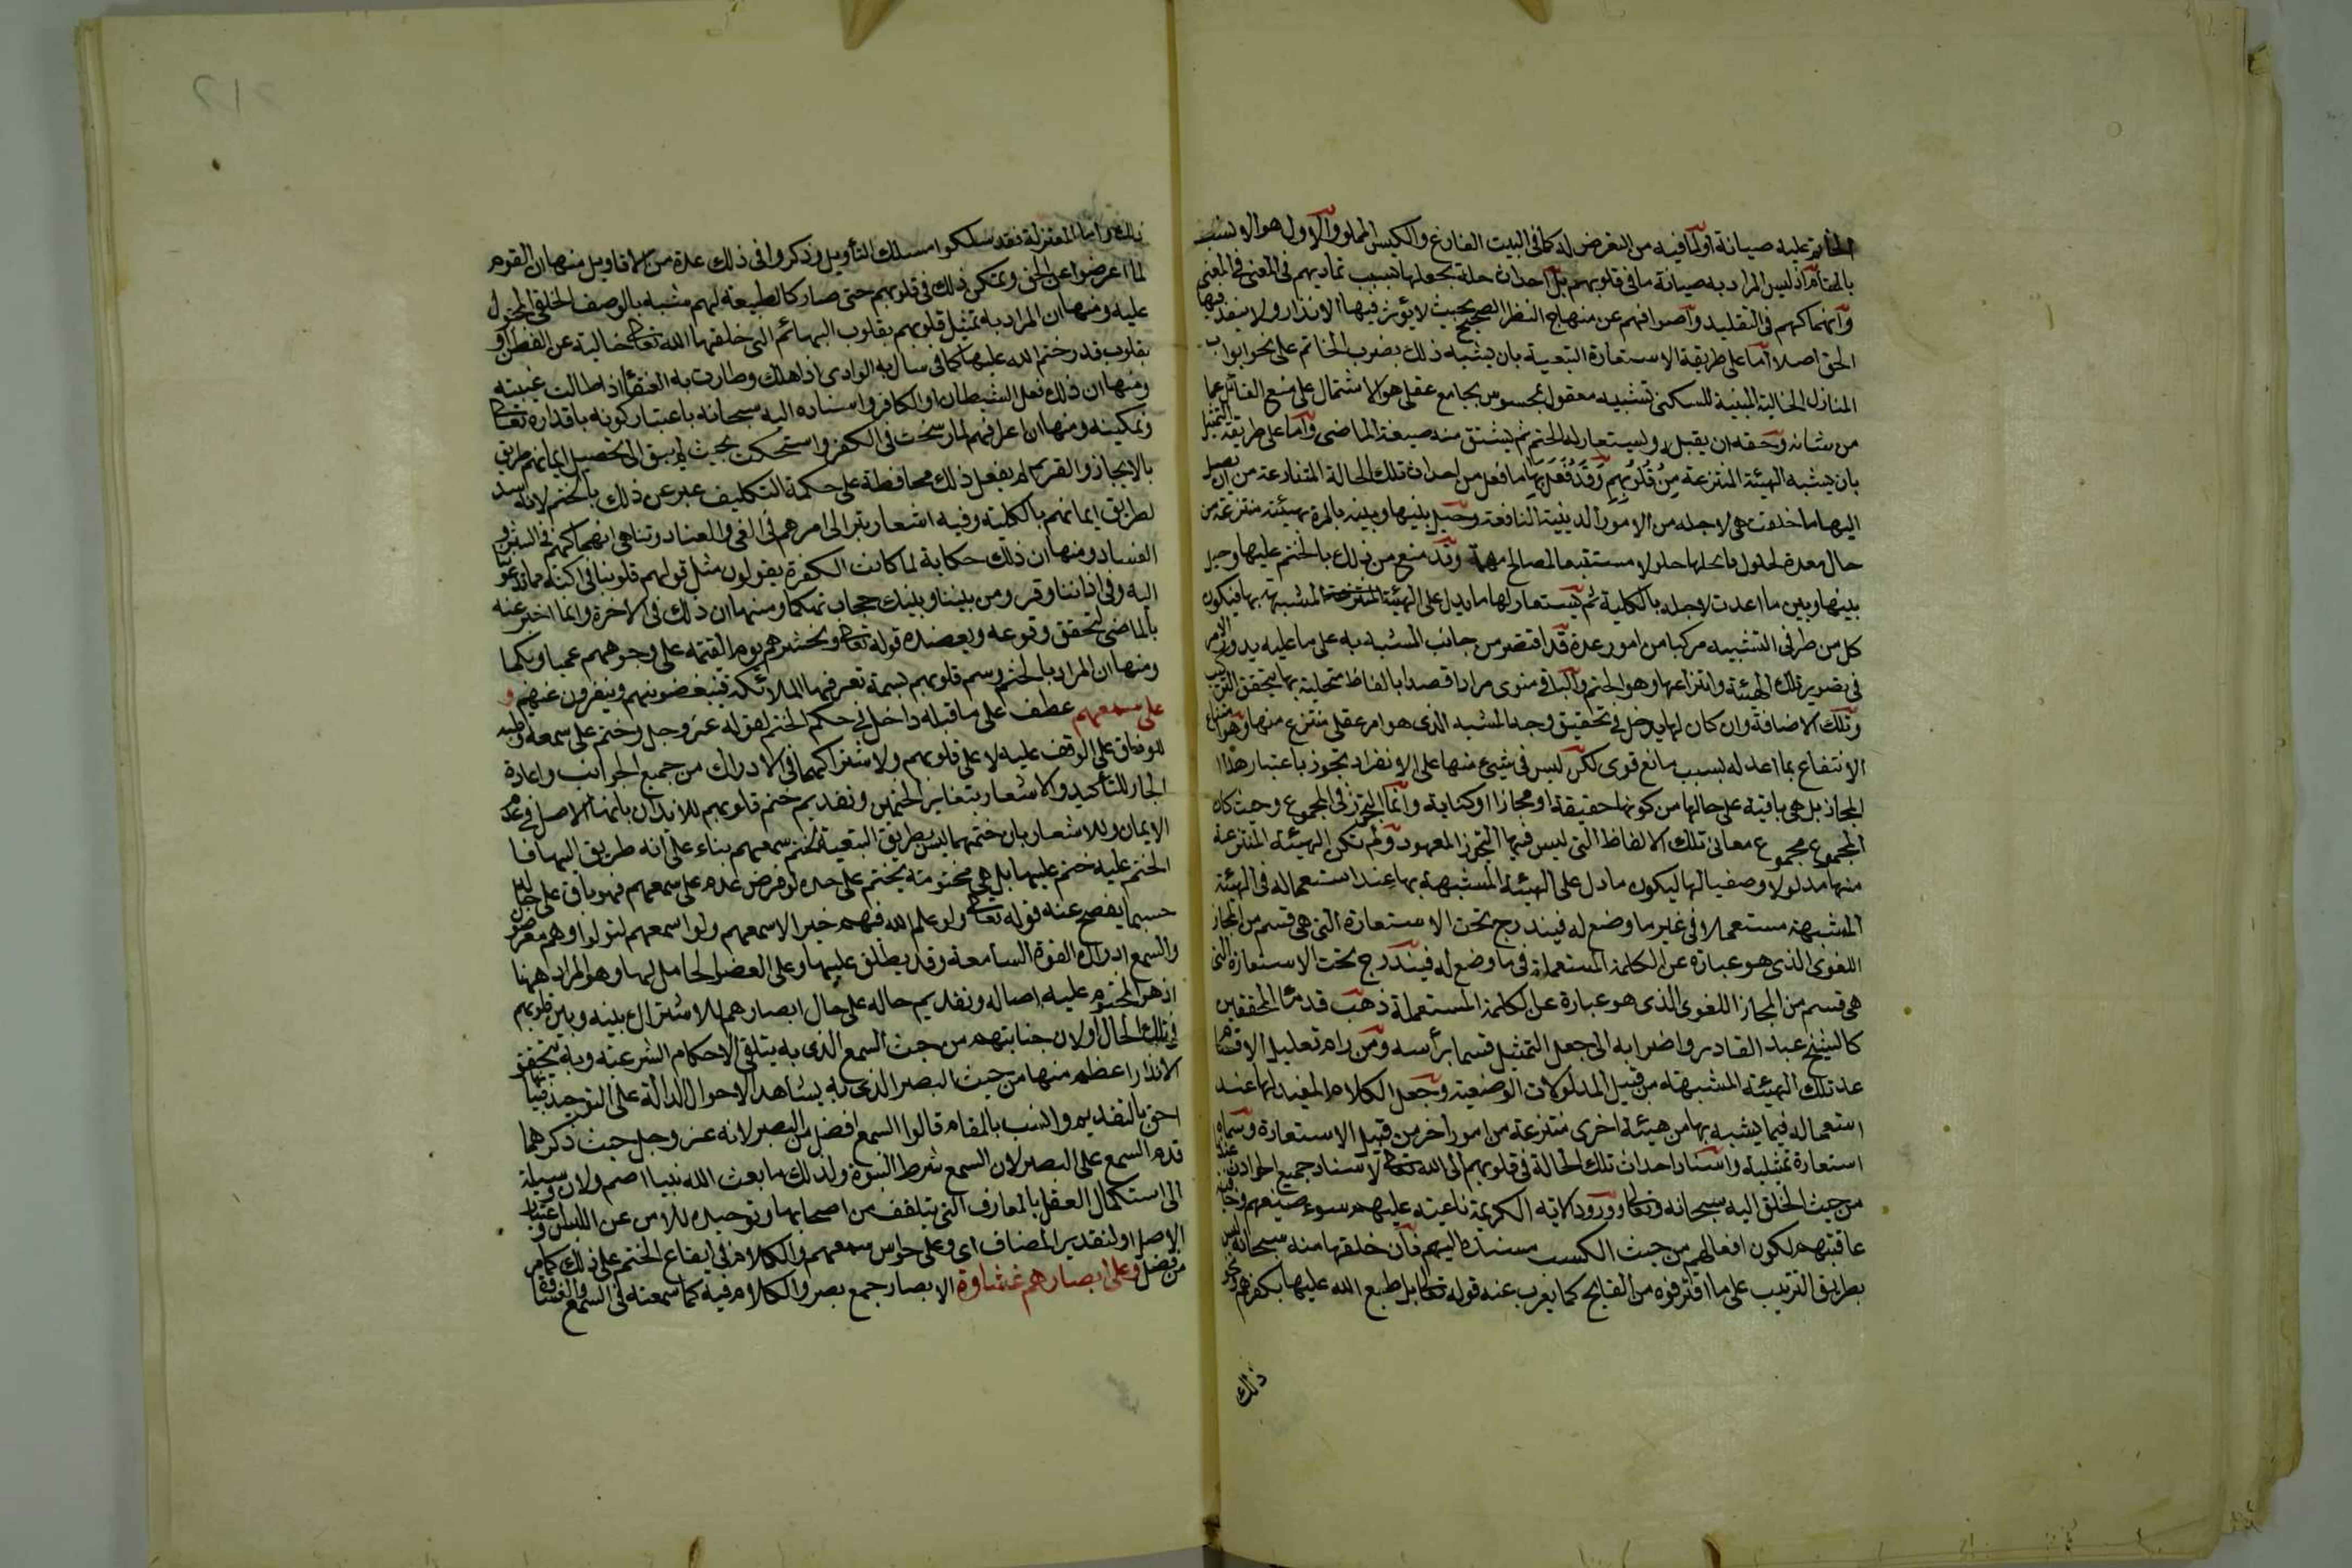 الخاتم عليه صيانة او لما فيه من التعرض له كما في البيت الفارغ والكيس المملو والاول هو الانسب
بالمقام اذ ليس المراد به صيانة ما في قلوبهم بل احداث حالة تجعلها بسبب تماديهم في الغي
وانهماكهم في التقليد واعراضهم عن منهاج النظر الصحيح بحيث لا يؤثر فيها الانذار ولا ينفذ فيها
الحق اصلا اما على طريقة الاستعارة التبعية بان يشبه ذلك بضرب الخاتم على نحو ابواب
المنازل الخالية المبنية للسكنى تشبيه معقول بمحسوس بجامع عقلي هو الاشتمال على منع القابل عما
من شانه وحقه ان يقبله ويستعار له الختم ثم يشتق منه صيغة الماضي واما على طريقة التمثيل
بان يشبه الهيئة المنتزعة من قلوبهم وقد فعل بها ما فعل من احداث تلك الحالة المانعة من ان يصل
اليها ما خلقت هي لاجله من الامور الدينية النافعة وحيل بينها وبينه بالمرة بهيئة منتزعة من
محال معدة لحلول ما يحلها حلولا مستتبعا لمصالح مهمة وقد منع من ذلك بالختم عليها وحيل
بينها وبين ما اعدت لاجله بالكلية ثم يستعار لها ما يدل على الهيئة المشبه بها فيكون
كل من طرفي التشبيه مركبا من امور عدة قد اقتصر من جانب المشبه به على ما عليه يدور الامر
في تصوير تلك الهيئة وانتزاعها وهو الختم والباقي منوي مراد قصدا بالفاظ متخيلة بها يتحقق التركيب
وتلك الالفاظ وان كان لها مدخل في تحقيق وجه الشبه الذي هو امر عقلي منتزع منها وهو امتناع
الانتفاع بما اعد له بسبب مانع قوي لكن ليس في شيئ منها على الانفراد تجوز باعتبار هذا
المجاز بل هي باقية على حالها من كونها حقيقة او مجازا او كناية وانما التجوز في المجموع وحيث كان
المجموع مجموع معاني تلك الالفاظ التي ليس فيها التجوز المعهود ولم تكن الهيئة المنتزعة
منها مدلولا وضعيا لها ليكون ما دل على الهيئة المشبهة بها عند استعماله في الهيئة
المشبهة مستعملا في غير ما وضع له فيندرج تحت الاستعارة التي هي قسم من المجاز
اللغوي الذي هو عبارة عن الكلمة المستعملة في ما وضع له فيندرج تحت الاستعارة التي
هي قسم من المجاز اللغوي الذي هو عبارة عن الكلمة المستعملة ذهب قدماء المحققين
كالشيخ عبد القادر واضرابه الى جعل التمثيل قسما برأسه ومن رام تقليل الاقسام
عد تلك الهيئة المشبهة من قبيل المدلولات الوضعية وجعل الكلام المفيد لها عند
استعماله فيما يشبه بها من هيئة اخرى منتزعة من امور اخر من قبيل الاستعارة وسماه
استعارة تمثيلية واسناد احداث تلك الحالة في قلوبهم الى الله تعالى لاسناد جميع الحوادث عندنا
من حيث الخلق اليه سبحانه وتعالى وورود الاية الكريمة ناعية عليهم سوء صنيعهم
عاقبتهم لكون افعالهم من حيث الكسب مستندة اليهم فان خلقها منه سبحانه ليس
بطريق الترتيب على ما اقترفوه من القبايح كما يعرب عنه قوله تعالى بل طبع الله عليها بكفرهم ونحو
ذلك
ذلك واما المعتزلة فقد سلكوا مسلك التأويل وذكروا في ذلك عدة من الاقاويل منها ان القوم
لما اعرضوا عن الحق وتمكن ذلك في قلوبهم حتى صار كالطبيعة لهم شبه بالوصف الخلقي المجبول
عليه ومنها ان المراد به تمثيل قلوبهم بقلوب البهائم التي خلقها الله تعالى خالية عن الفطن او
بقلوب قدر ختم الله عليها كما في سال به الوادي اذا هلك وطارت به العنقاء اذا طالت غيبته
ومنها ان ذلك فعل الشيطان او الكافر واسناده اليه سبحانه باعتبار كونه باقداره تعالى
وتمكينه ومنها ان اعراقهم لما رسخت في الكفر واستحكمت بحيث لم يبق الى تحصيل ايمانهم طريق
بالايجاز والقسر ثم لم يفعل ذلك محافظة على حكمة التكليف عبر عن ذلك بالختم لانه سد
لطريق ايمانهم بالكلية وفيه اشعار بترامي امرهم في الغي والعناد وتناهي انهماكهم في الشر و
الفساد ومنها ان ذلك حكاية لما كانت الكفرة يقولون مثل قولهم قلوبنا في اكنة مما تدعونا
اليه وفي اذاننا وقر ومن بيننا وبينك حجاب تهكما ومنها ان ذلك في الاخرة وانما اخبر عنه
بالماضي لتحقق وقوعه ويعضده قوله تعالى ونحشرهم يوم القيمة على وجوههم عميا وبكما
ومنها ان المراد بالختم وسم قلوبهم بسمة تعرفها الملائكة فيبغضونهم وينفرون عنهم و
على سمعهم عطف على ما قبله داخل في حكم الختم لقوله عز وجل وختم على سمعه وقلبه
للوفاق على الوقف عليه لا على قلوبهم ولاشتراكهما في الادراك من جميع الجوانب واعادة
الجار للتأكيد والاشعار بتغاير الختمين وتقديم ختم قلوبهم للايذان بانها الاصل في عدم
الايمان وللاشعار بان ختمها ليس بطريق التبعية لختم سمعهم بناء على انه طريق اليها فا
لختم عليه ختم عليها بل هي مختومة بختم على حده لو فرض عدم على سمعهم فهو باق على حاله
حسبما يفصح عنه قوله تعالى ولو علم الله فيهم خيرا لاسمعهم ولو اسمعهم لتولوا وهم معرضون
والسمع ادراك القوة السامعة وقد يطلق عليها وعلى العضو الحامل لها وهو المراد ههنا
اذ هو المختوم عليه اصالة وتقديم حاله على حال ابصارهم للاشتراك بينه وبين قلوبهم
في تلك الحال اولان جنايتهم من حيث السمع الذي به يتلقى الاحكام الشرعية وبه يتحقق
الانذار اعظم منها من حيث البصر الذي به يشاهد الاحوال الدالة على التوحيد فبيانها
احق بالتقديم وانسب بالمقام قالوا السمع افضل من البصر لانه عز وجل حيث ذكرهما
قدم السمع على البصر لان السمع شرط النبوة ولذلك ما بعث الله نبيا اصم ولان وسيلة
الى استكمال العقل بالمعارف التي يتلقف من اصحابها وتوحيده للامن عن اللبس واعتبار
الاصل او لتقدير المضاف اي وعلى حواس سمعهم والكلام في ايقاع الختم على ذلك كما مر
من فضل وعلى ابصارهم غشاوة الابصار جمع بصر والكلام فيه كما سمعته في السمع والغشاوة